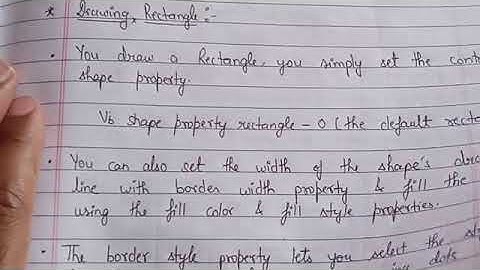 * Drawing, Rectangle :-
• You draw a Rectangle, you simply set the
shape property.
Vb shape property rectangle - 0 (the default
• You can also set the width of the shape's
line with border width property & fill the
using the fill color & fill style properties.
• The border style property lets you select the
dots